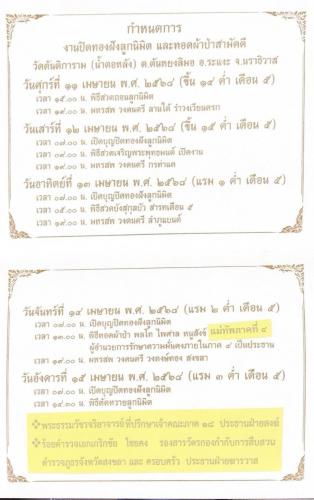 กำหนดการ
งานปิดทองฝังลูกนิมิต และทอดผ้าป่าสามัคคี
วัดตันติการาม (น้ำตอหลัง) ต.ตันหยงลิมอ อ.ระแงะ จ.นราธิวาส
วันศุกร์ที่ ๑๑ เมษายน พ.ศ. ๒๕๖๘ (ขึ้น ๑๔ ค่ำ เดือน ๕)
เวลา ๑๕.๐๐ น. พิธีสวดถอนลูกนิมิต
เวลา ๑๙.๐๐ น. มหรสพ วงดนตรี ลานโต๊ รำวงเวียนครก
วันเสาร์ที่ ๑๒ เมษายน พ.ศ. ๒๕๖๘ (ขึ้น ๑๕ ค่ำ เดือน ๕)
เวลา ๐๗.๐๐ น. เปิดบุญปิดทองฝังลูกนิมิต
เวลา ๐๗.๐๐ น. พิธีสวดเจริญพระพุทธมนต์ เปิดงาน
เวลา ๑๙.๐๐ น. มหรสพ วงดนตรี
วันอาทิตย์ที่ ๑๓ เมษายน พ.ศ. ๒๕๖๘ (แรม ๑ ค่ำ เดือน ๕)
เวลา ๐๗.๐๐ น. เปิดบุญปิดทองฝังลูกนิมิต
เวลา ๐๙.๐๐ น. พิธีสวดบังสุกุลบัว สารทเดือน ๕
เวลา ๑๙.๐๐ น. มหรสพ วงดนตรี ลำภูแบนด์
วันจันทร์ที่ ๑๔ เมษายน พ.ศ. ๒๕๖๘ (แรม ๒ ค่ำ เดือน ๕)
เวลา ๐๗.๐๐ น. เปิดบุญปิดทองฝังลูกนิมิต
เวลา ๑๓.๐๐ น. พิธีทอดผ้าป่า พลโท ไพศาล หนูสังข์ แม่ทัพภาคที่ ๔
ผู้อำนวยการรักษาความมั่นคงภายในภาค ๔ เป็นประธาน
เวลา ๑๙.๐๐ น. มหรสพ วงดนตรี วงพงษ์ทอง สงขลา
วันอังคารที่ ๑๕ เมษายน พ.ศ. ๒๕๖๘ (แรม ๓ ค่ำ เดือน ๕)
เวลา ๐๗.๐๐ น. เปิดบุญปิดทองฝังลูกนิมิต
เวลา ๑๔.๓๐ น. พิธีตัดหวายลูกนิมิต
พระธรรมวัชรจริยาจารย์ ที่ปรึกษาเจ้าคณะภาค ๑๘ ประธานฝ่ายสงฆ์
ร้อยตำรวจเอกเกริกชัย ไชยคง รองสารวัตรกองกำกับการสืบสวน
ตำรวจภูธรจังหวัดสงขลา และ ครอบครัว ประธานฝ่ายฆราวาส